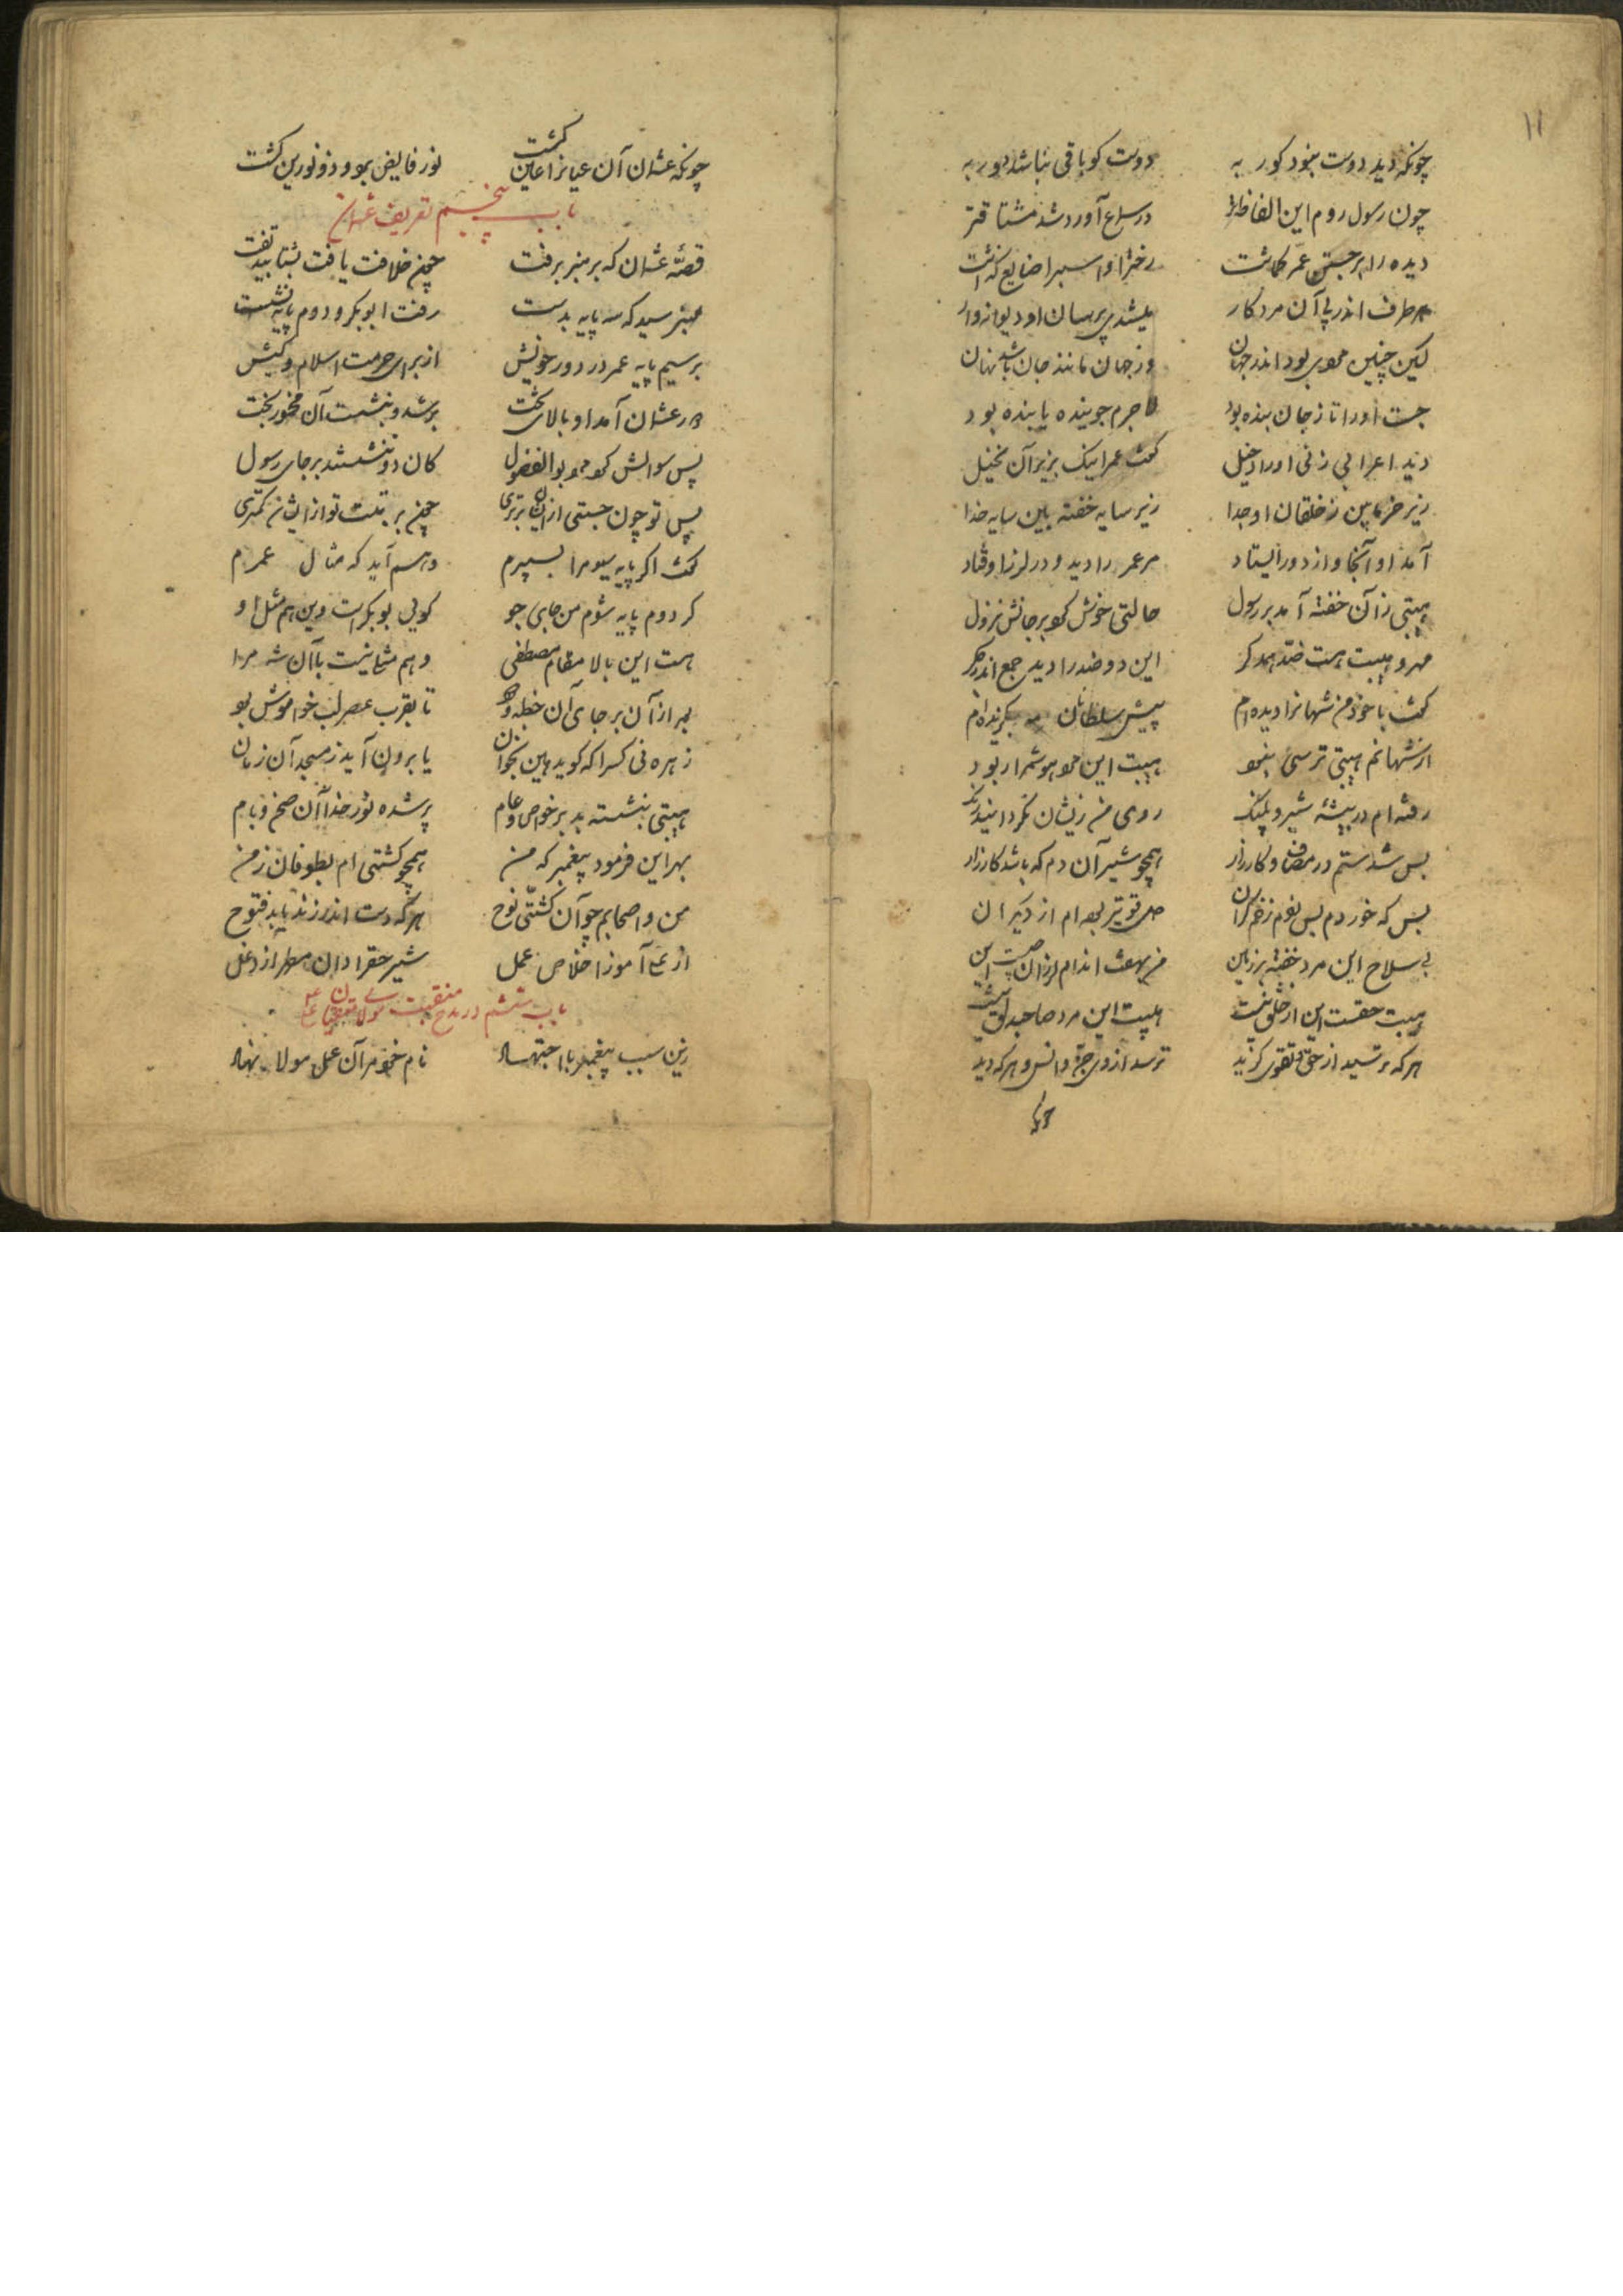 ۱۱
چونکه دید دوست نبود کور به دوست کو باقی نباشد دور به
چون رسول روم این الفاظ تر در سماع آورد شد مشتاقتر
دیده را بر جستن عمّر کماشت رختر او اسبرا ضایع کذاشت
هر طرف اندر پی آن مرد کار میشدی پرسان او دیوانه وار
لیکن چنین مردی بود اندر جهان وز جهان مانند جان باشد نهان
جست او را تا ز جان بنده بود لاجرم جوینده یابنده بود
دید اعرابی زنی او را دخیل کفت عمر اینک بزیر آن نخیل
زیر خرما بن ز خلقان او جدا زیر سایه خفته بین سایه خدا
آمد او آنجا و از دور ایستاد مر عمر را دید و در لرز اوفتاد
هیبتی زان خفته آمد بر رسول حالتی خوش کرد بر جانش نزول
مهر و هیبت هست ضدّ همدکر این دو ضد را دید جمع اندر جکر
کفت با خود من شهانرا دیده ام پیش سلطانان بکزیده ام
از شهانم هیبتی ترسی نبود هیبت این مرد هوشم را ربود
رفته ام در بیشه شیر و پلنک روی من زیشان نکردانید رنک
بس شدستم در مصاف و کارزار همچو شیر آن دم که باشد کارزار
بس که خوردم بس زدم زخم کران دل قویتر بوده ام از دیکران
بی سلاح این مرد خفته بر زمین من بهفت اندام لرزان چیست این
هیبت حقست این از خلق نیست هیبت این مرد صاحب دلق نیست
هر که ترسید از حق و تقوی کزید ترسد از وی جنّ و انس و هر که دید
چونکه عثمان آن عیانرا عین کشت نور فایض بود و ذونورین کشت
باب پنجم تعریف عثمان
قصّه عثمان که بر منبر برفت چون خلافت یافت بشتابید تفت
منبر سید که سه پایه بدست رفت ابوبکر و دوم پایه نشست
بر سیم پایه عمر در دور خویش از برای حرمت اسلام و کیش
دور عثمان آمد او بالای تخت بر شد و بنشست آن بخت
پس سوالش کرد مرد بوالفضول کان دو ننشستند بر جای رسول
پس تو چون جستی از ایشان برتری چون برتبت تو از ایشان کمتری
کفت اکر پایه سیم را بسپرم وهم آید که مثال عمرم
کر دوم پایه شوم من جای جو کویی بوبکرست وین هم مثل او
هست این بالا مقام مصطفی وهم مثلی نیست با آن شه مرا
بعد از آن بر جای آن خطبه ودود تا بقرب عصر لب خواموش بود
زهره نی کسرا که کوید هین بخوان یا برون آید ز مسجد آن زمان
هیبتی بنشسته بد بر خواص و عام پر شده نور خدا آن صحن و بام
بهر این فرمود پیغمبر که من همچو کشتی ام بطوفان زمن
من و اصحابم چو آن کشتی نوح هر که دست اندر زند یابد فتوح
از علی آموز اخلاص عمل شیر حقرا دان مطهر از دغل
باب ششم در مدح منقبت مولا علی
زین سبب پیغمبر با اجتهاد نام خود مر آن علی مولا نهاد